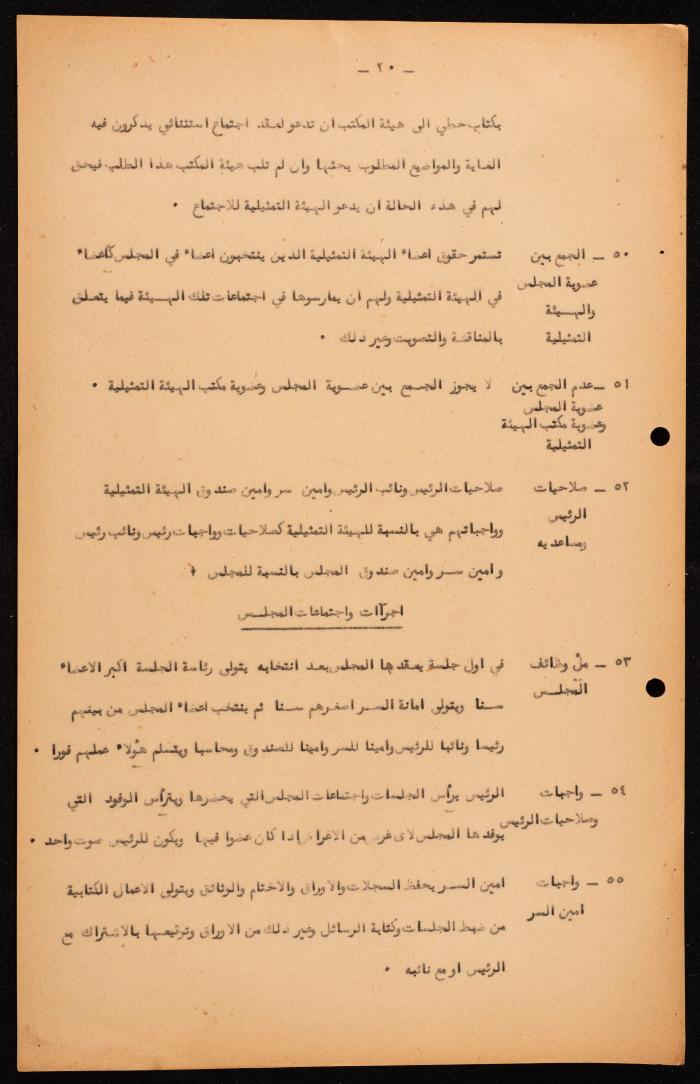 — ٢٠ —
بكتاب خطي الى هيئة المكتب ان تدعو لعقد اجتماع استثنائي يذكرون فيه
الغاية والمواضيع المطلوب بحثها وان لم تلب هيئة المكتب هذا الطلب فيحق
لهم في هذه الحالة ان يدعو الهيئة التمثيلية للاجتماع ٠
٥٠ — الجمع بين
عضوية المجلس
والهيئة
التمثيلية
تستمر حقوق اعضاء الهيئة التمثيلية الذين ينتخبون اعضاء في المجلس كأعضاء
في الهيئة التمثيلية ولهم ان يمارسوها في اجتماعات تلك الهيئة فيما يتعلق
بالمناقشة والتصويت وغير ذلك ٠
٥١ — عدم الجمع بين
عضوية المجلس
وعضوية مكتب الهيئة
التمثيلية
لا يجوز الجمع بين عضوية المجلس وعضوية مكتب الهيئة التمثيلية ٠
٥٢ — صلاحيات
الرئيس
ومساعديه
صلاحيات الرئيس ونائب الرئيس وامين سر وامين صندوق الهيئة التمثيلية
وواجباتهم هي بالنسبة للهيئة التمثيلية كصلاحيات وواجبات رئيس ونائب رئيس
وامين سر وامين صندوق المجلس بالنسبة للمجلس ٠
اجراآت واجتماعات المجلس
٥٣ — ملْ وظائف
المجلس
في اول جلسة يعقدها المجلس بعد انتخابه يتولى رئاسة الجلسة اكبر الاعضاء
سنا ويتولى امانة السر اصغرهم سنا ثم ينتخب اعضاء المجلس من بينهم
رئيسا ونائبا للرئيس وامينا للسر وامينا للصندوق ومحاسبا ويتسلم هؤلاء عملهم فورا ٠
٥٤ — واجبات
وصلاحيات الرئيس
الرئيس يرأس الجلسات واجتماعات المجلس التي يحضرها ويترأس الوفود التي
يوفدها المجلس لاى غرض من الاغراض اذا كان عضوا فيها ويكون للرئيس صوت واحد ٠
٥٥ — واجبات
امين السر
امين السر يحفظ السجلات والاوراق والاختام والوثائق ويتولى الاعمال الكتابية
من ضبط الجلسات وكتابة الرسائل وغير ذلك من الاوراق وتوقيعها بالاشتراك مع
الرئيس او مع نائبه ٠